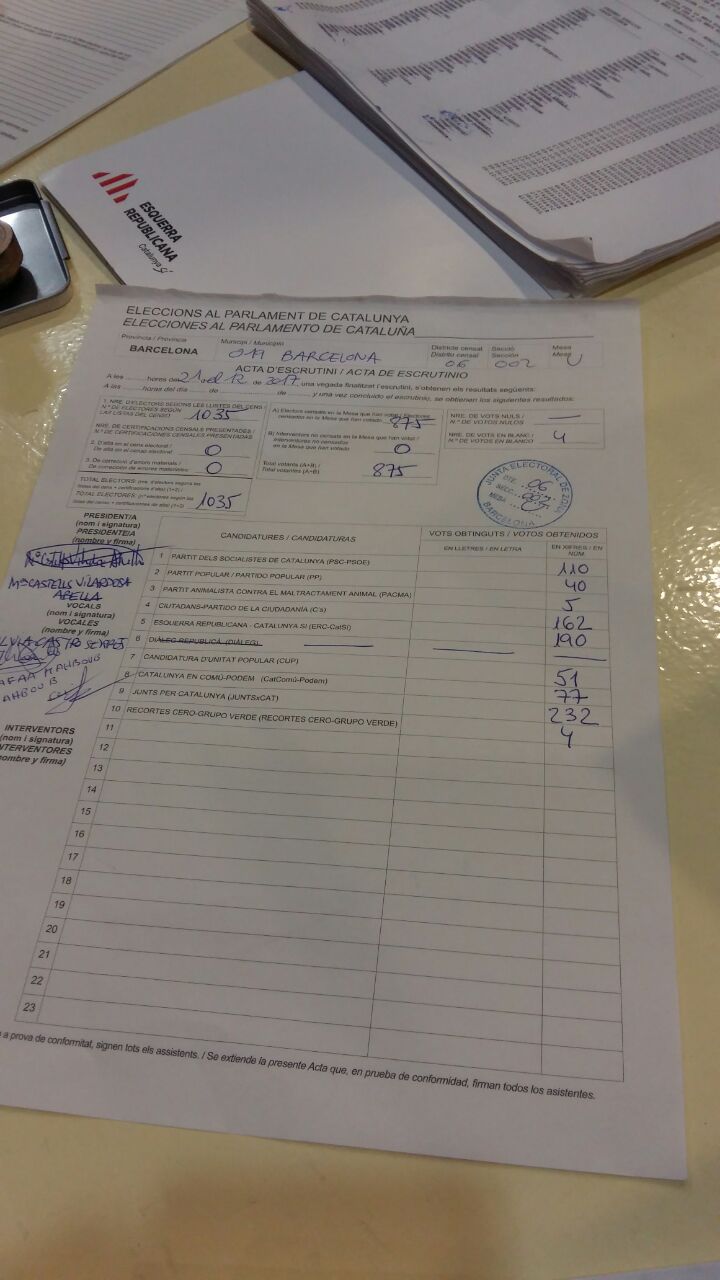 ESQUERRA
REPUBLICANA
Catalunya sí
ELECCIONS AL PARLAMENT DE CATALUNYA
ELECCIONES AL PARLAMENTO DE CATALUÑA
Província / Provincia
BARCELONA
Municipi / Municipio
019 BARCELONA
Districte censal
Distrito censal
06
Secció
Sección
002
Mesa
Mesa
U
ACTA D'ESCRUTINI / ACTA DE ESCRUTINIO
A les ...... hores del 21 del 12 de 2017, una vegada finalitzat l'escrutini, s'obtenen els resultats següents:
A las ...... horas del día ...... de ...... de ...... y una vez concluido el escrutinio, se obtienen los siguientes resultados:
1. NRE. D'ELECTORS SEGONS LES LLISTES DEL CENS
N.º DE ELECTORES SEGÚN
LAS LISTAS DEL CENSO
1035
NRE. DE CERTIFICACIONS CENSALS PRESENTADES /
N.º DE CERTIFICACIONES CENSALES PRESENTADAS
2. D'alta en el cens electoral /
De alta en el censo electoral
0
3. De correcció d'errors materials /
De corrección de errores materiales
0
TOTAL ELECTORS
TOTAL ELECTORES
1035
A) Electors censats en la Mesa que han votat / Electores
censados en la Mesa que han votado
875
B) Interventors no censats en la Mesa que han votat /
Interventores no censados
en la Mesa que han votado
0
Total votants (A+B) /
Total votantes (A+B)
875
NRE. DE VOTS NULS /
N.º DE VOTOS NULOS
—
NRE. DE VOTS EN BLANC /
N.º DE VOTOS EN BLANCO
4
JUNTA ELECTORAL DE ZONA
DTE. 06
SECC. 002
MESA U
BARCELONA
PRESIDENT/A
(nom i signatura)
PRESIDENTE/A
(nombre y firma)
Mª CASTELLS VILARDOSA
ABELLA
VOCALS
(nom i signatura)
VOCALES
(nombre y firma)
MAHBOUB
INTERVENTORS
(nom i signatura)
INTERVENTORES
(nombre y firma)
CANDIDATURES / CANDIDATURAS
VOTS OBTINGUTS / VOTOS OBTENIDOS
EN LLETRES / EN LETRA
EN XIFRES / EN NÚM.
1 PARTIT DELS SOCIALISTES DE CATALUNYA (PSC-PSOE) 110
2 PARTIT POPULAR / PARTIDO POPULAR (PP) 40
3 PARTIT ANIMALISTA CONTRA EL MALTRACTAMENT ANIMAL (PACMA) 5
4 CIUTADANS-PARTIDO DE LA CIUDADANÍA (C's) 162
5 ESQUERRA REPUBLICANA - CATALUNYA SÍ (ERC-CatSí) 190
6 DIÀLEG REPUBLICÀ (DIÀLEG) —
7 CANDIDATURA D'UNITAT POPULAR (CUP) 51
8 CATALUNYA EN COMÚ-PODEM (CatComú-Podem) 77
9 JUNTS PER CATALUNYA (JUNTSxCAT) 232
10 RECORTES CERO-GRUPO VERDE (RECORTES CERO-GRUPO VERDE) 4
11
12
13
14
15
16
17
18
19
20
21
22
23
a prova de conformitat, signen tots els assistents. / Se extiende la presente Acta que, en prueba de conformidad, firman todos los asistentes.